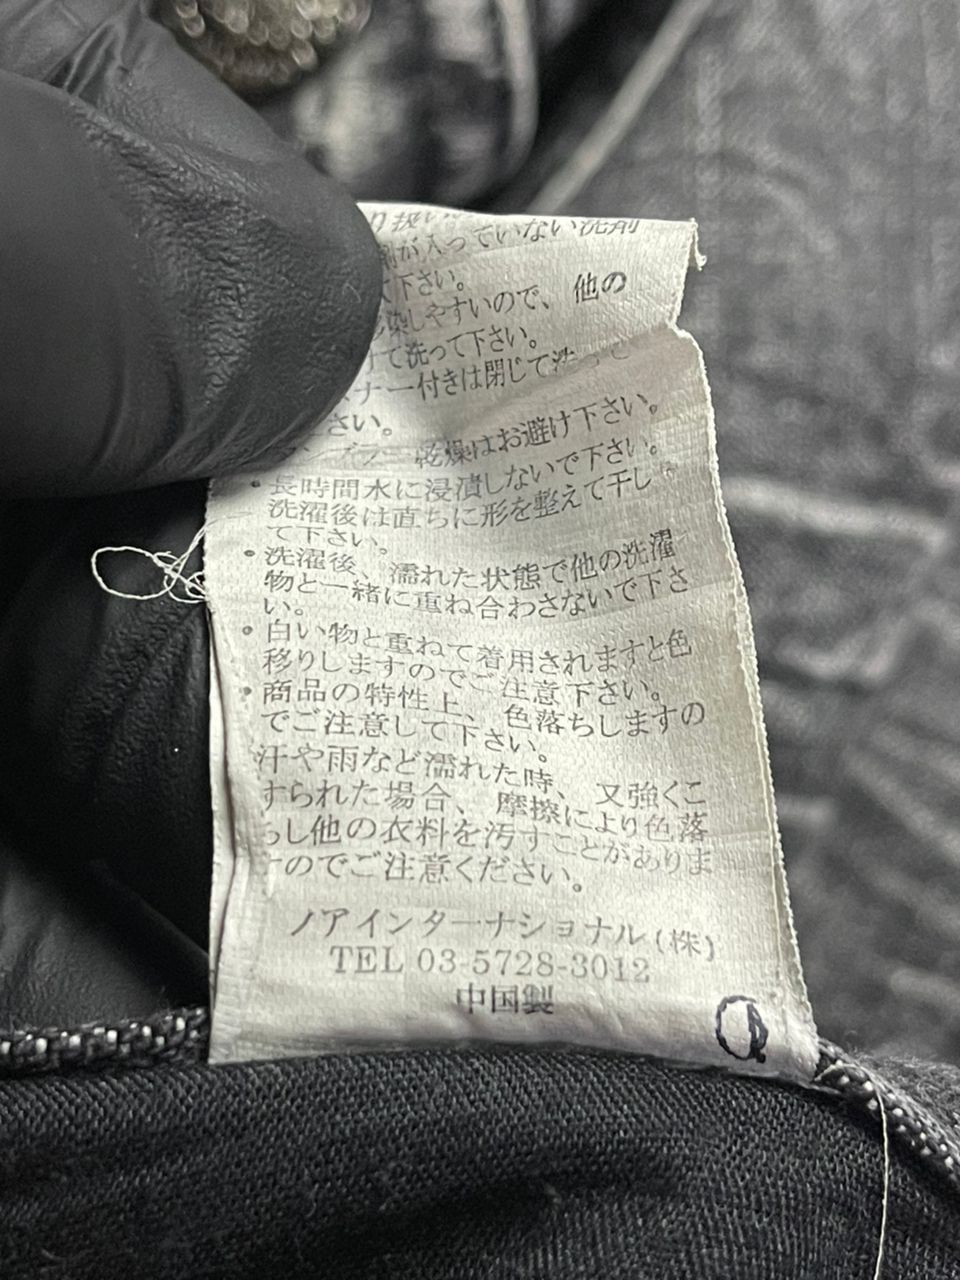 り扱い
剤が入っていない洗剤
下さい。
染しやすいので、他の
けて洗って下さい。
スナー付きは閉じて洗っ
さい。
タンブラー乾燥はお避け下さい。
・長時間水に浸漬しないで下さい。
洗濯後は直ちに形を整えて干し
て下さい。
・洗濯後、濡れた状態で他の洗濯
物と一緒に重ね合わさないで下さ
い。
・白い物と重ねて着用されますと色
移りしますのでご注意下さい。
・商品の特性上、色落ちしますの
でご注意して下さい。
汗や雨など濡れた時、又強くこ
すられた場合、摩擦により色落
ちし他の衣料を汚すことがありま
すのでご注意ください。
ノアインターナショナル(株)
TEL 03-5728-3012
中国製